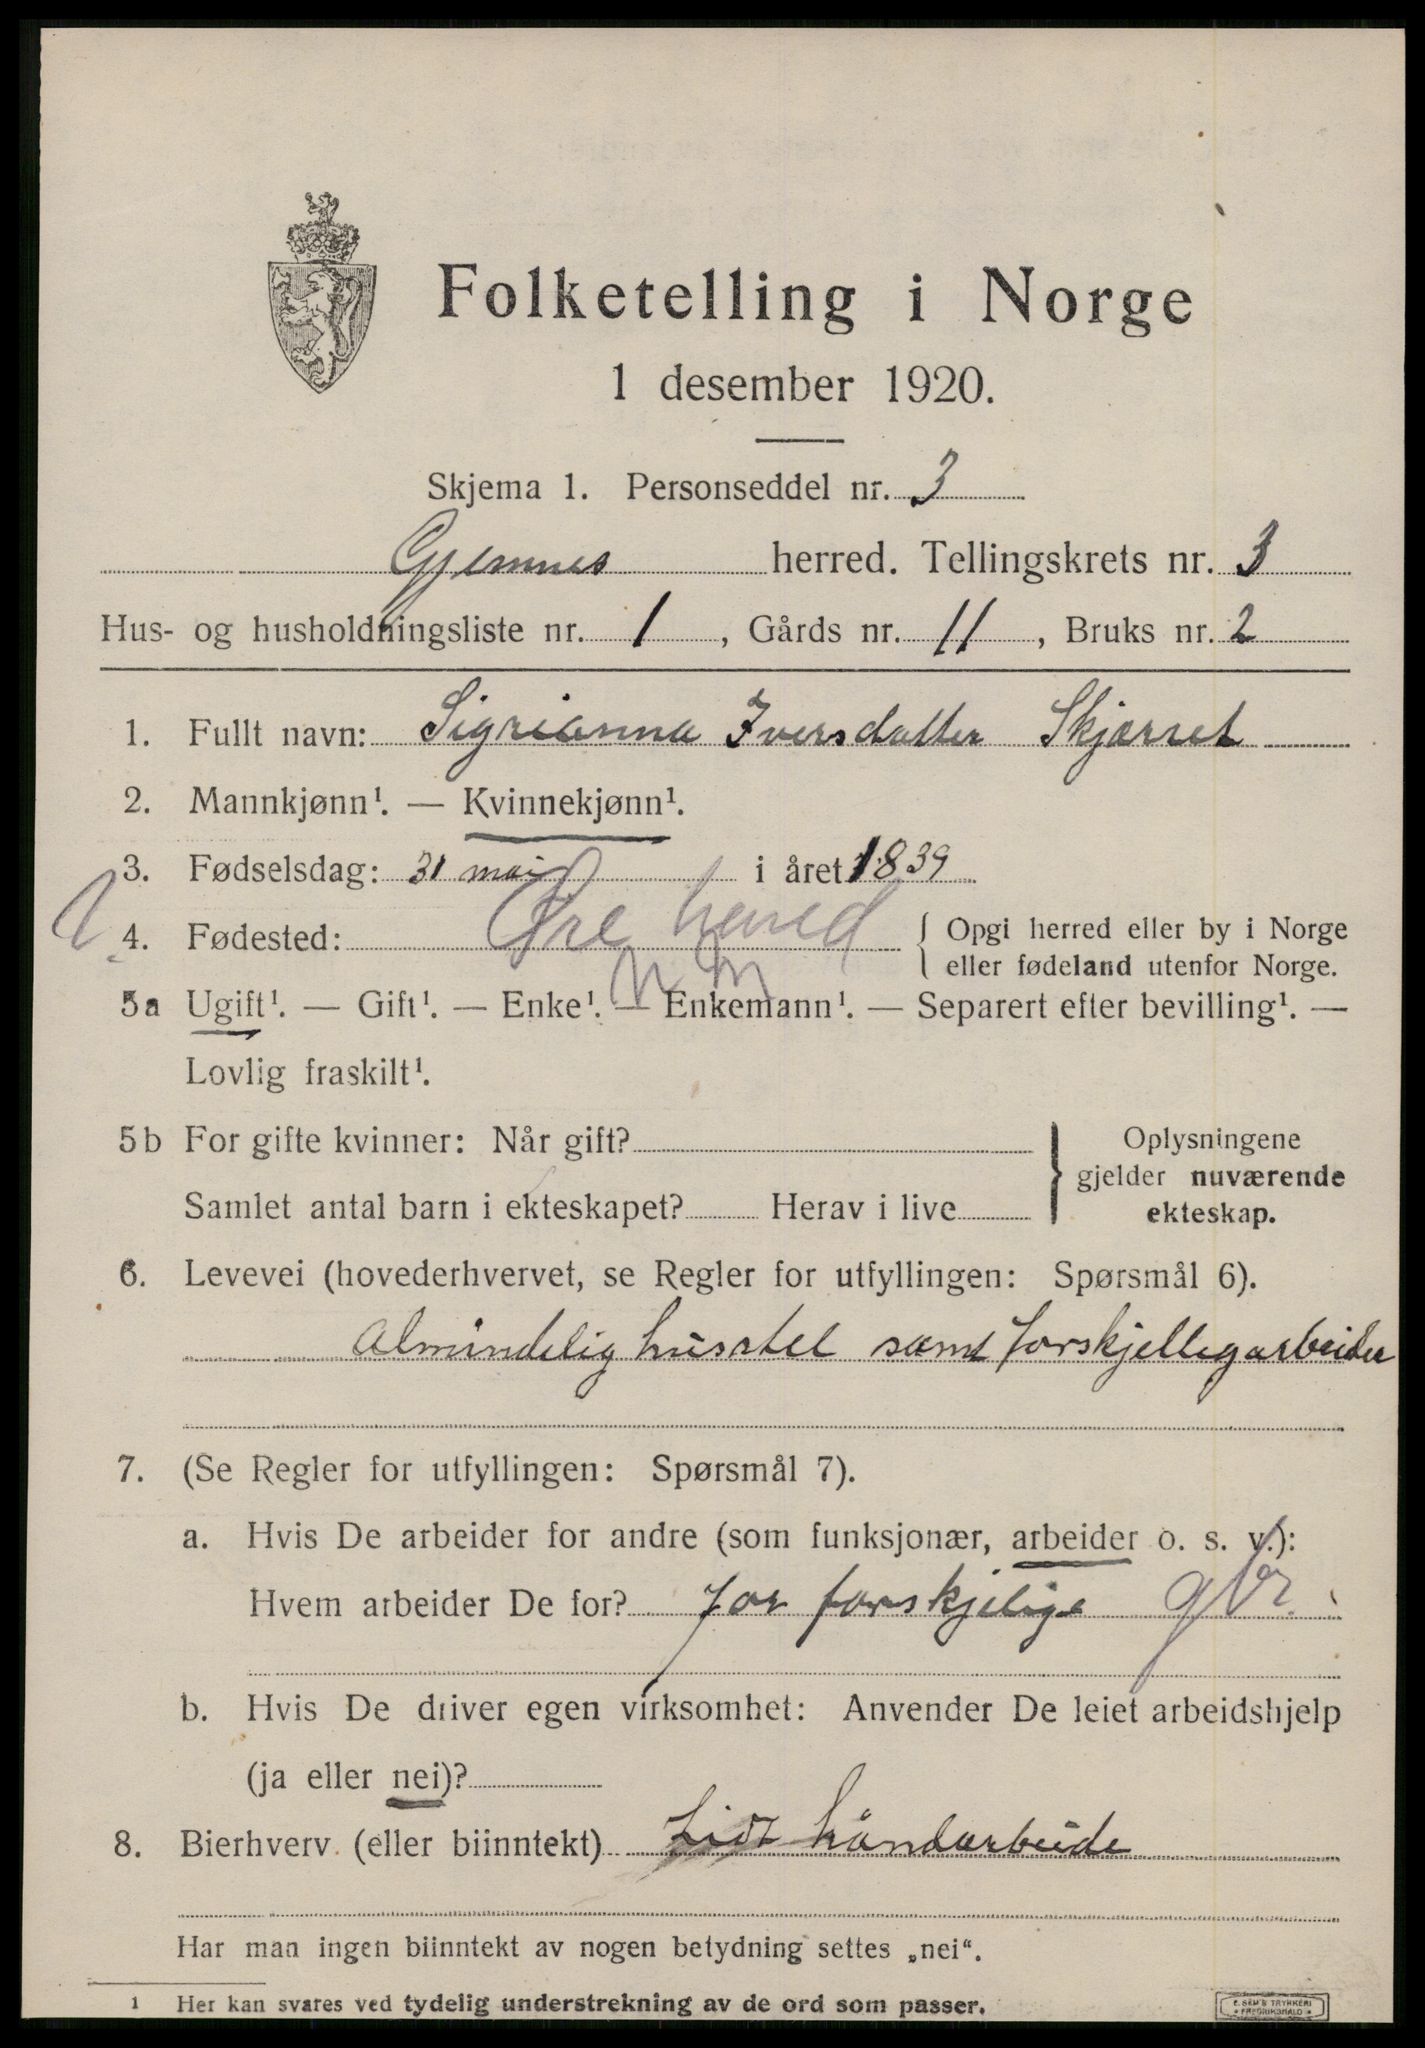 Folketelling i Norge
1 desember 1920.
Skjema 1. Personseddel nr. 3
Gjemnes herred. Tellingskrets nr. 3
Hus- og husholdningsliste nr. 1, Gårds nr. 11, Bruks nr. 2
1. Fullt navn: Sigrianna Iversdatter Skjærset
2. Mannkjønn¹. — Kvinnekjønn¹.
3. Fødselsdag: 31 mai i året 1839
4. Fødested: Øre herred { Opgi herred eller by i Norge
eller fødeland utenfor Norge.
5a Ugift¹. — Gift¹. — Enke¹. — Enkemann¹. — Separert efter bevilling¹. —
Lovlig fraskilt¹.
5b For gifte kvinner: Når gift? } Oplysningene
gjelder nuværende
Samlet antal barn i ekteskapet? Herav i live
ekteskap.
6. Levevei (hovederhvervet, se Regler for utfyllingen: Spørsmål 6).
Almindelig husstel samt forskjelligarbeider
7. (Se Regler for utfyllingen: Spørsmål 7).
a. Hvis De arbeider for andre (som funksjonær, arbeider o. s. v.):
Hvem arbeider De for? for forskjelige
b. Hvis De driver egen virksomhet: Anvender De leiet arbeidshjelp
(ja eller nei)?
8. Bierhverv (eller biinntekt) Lidt håndarbeide
Har man ingen biinntekt av nogen betydning settes „nei“.
1 Her kan svares ved tydelig understrekning av de ord som passer.
E. SEM'S TRYKKERI
* FREDRIKSHALD *